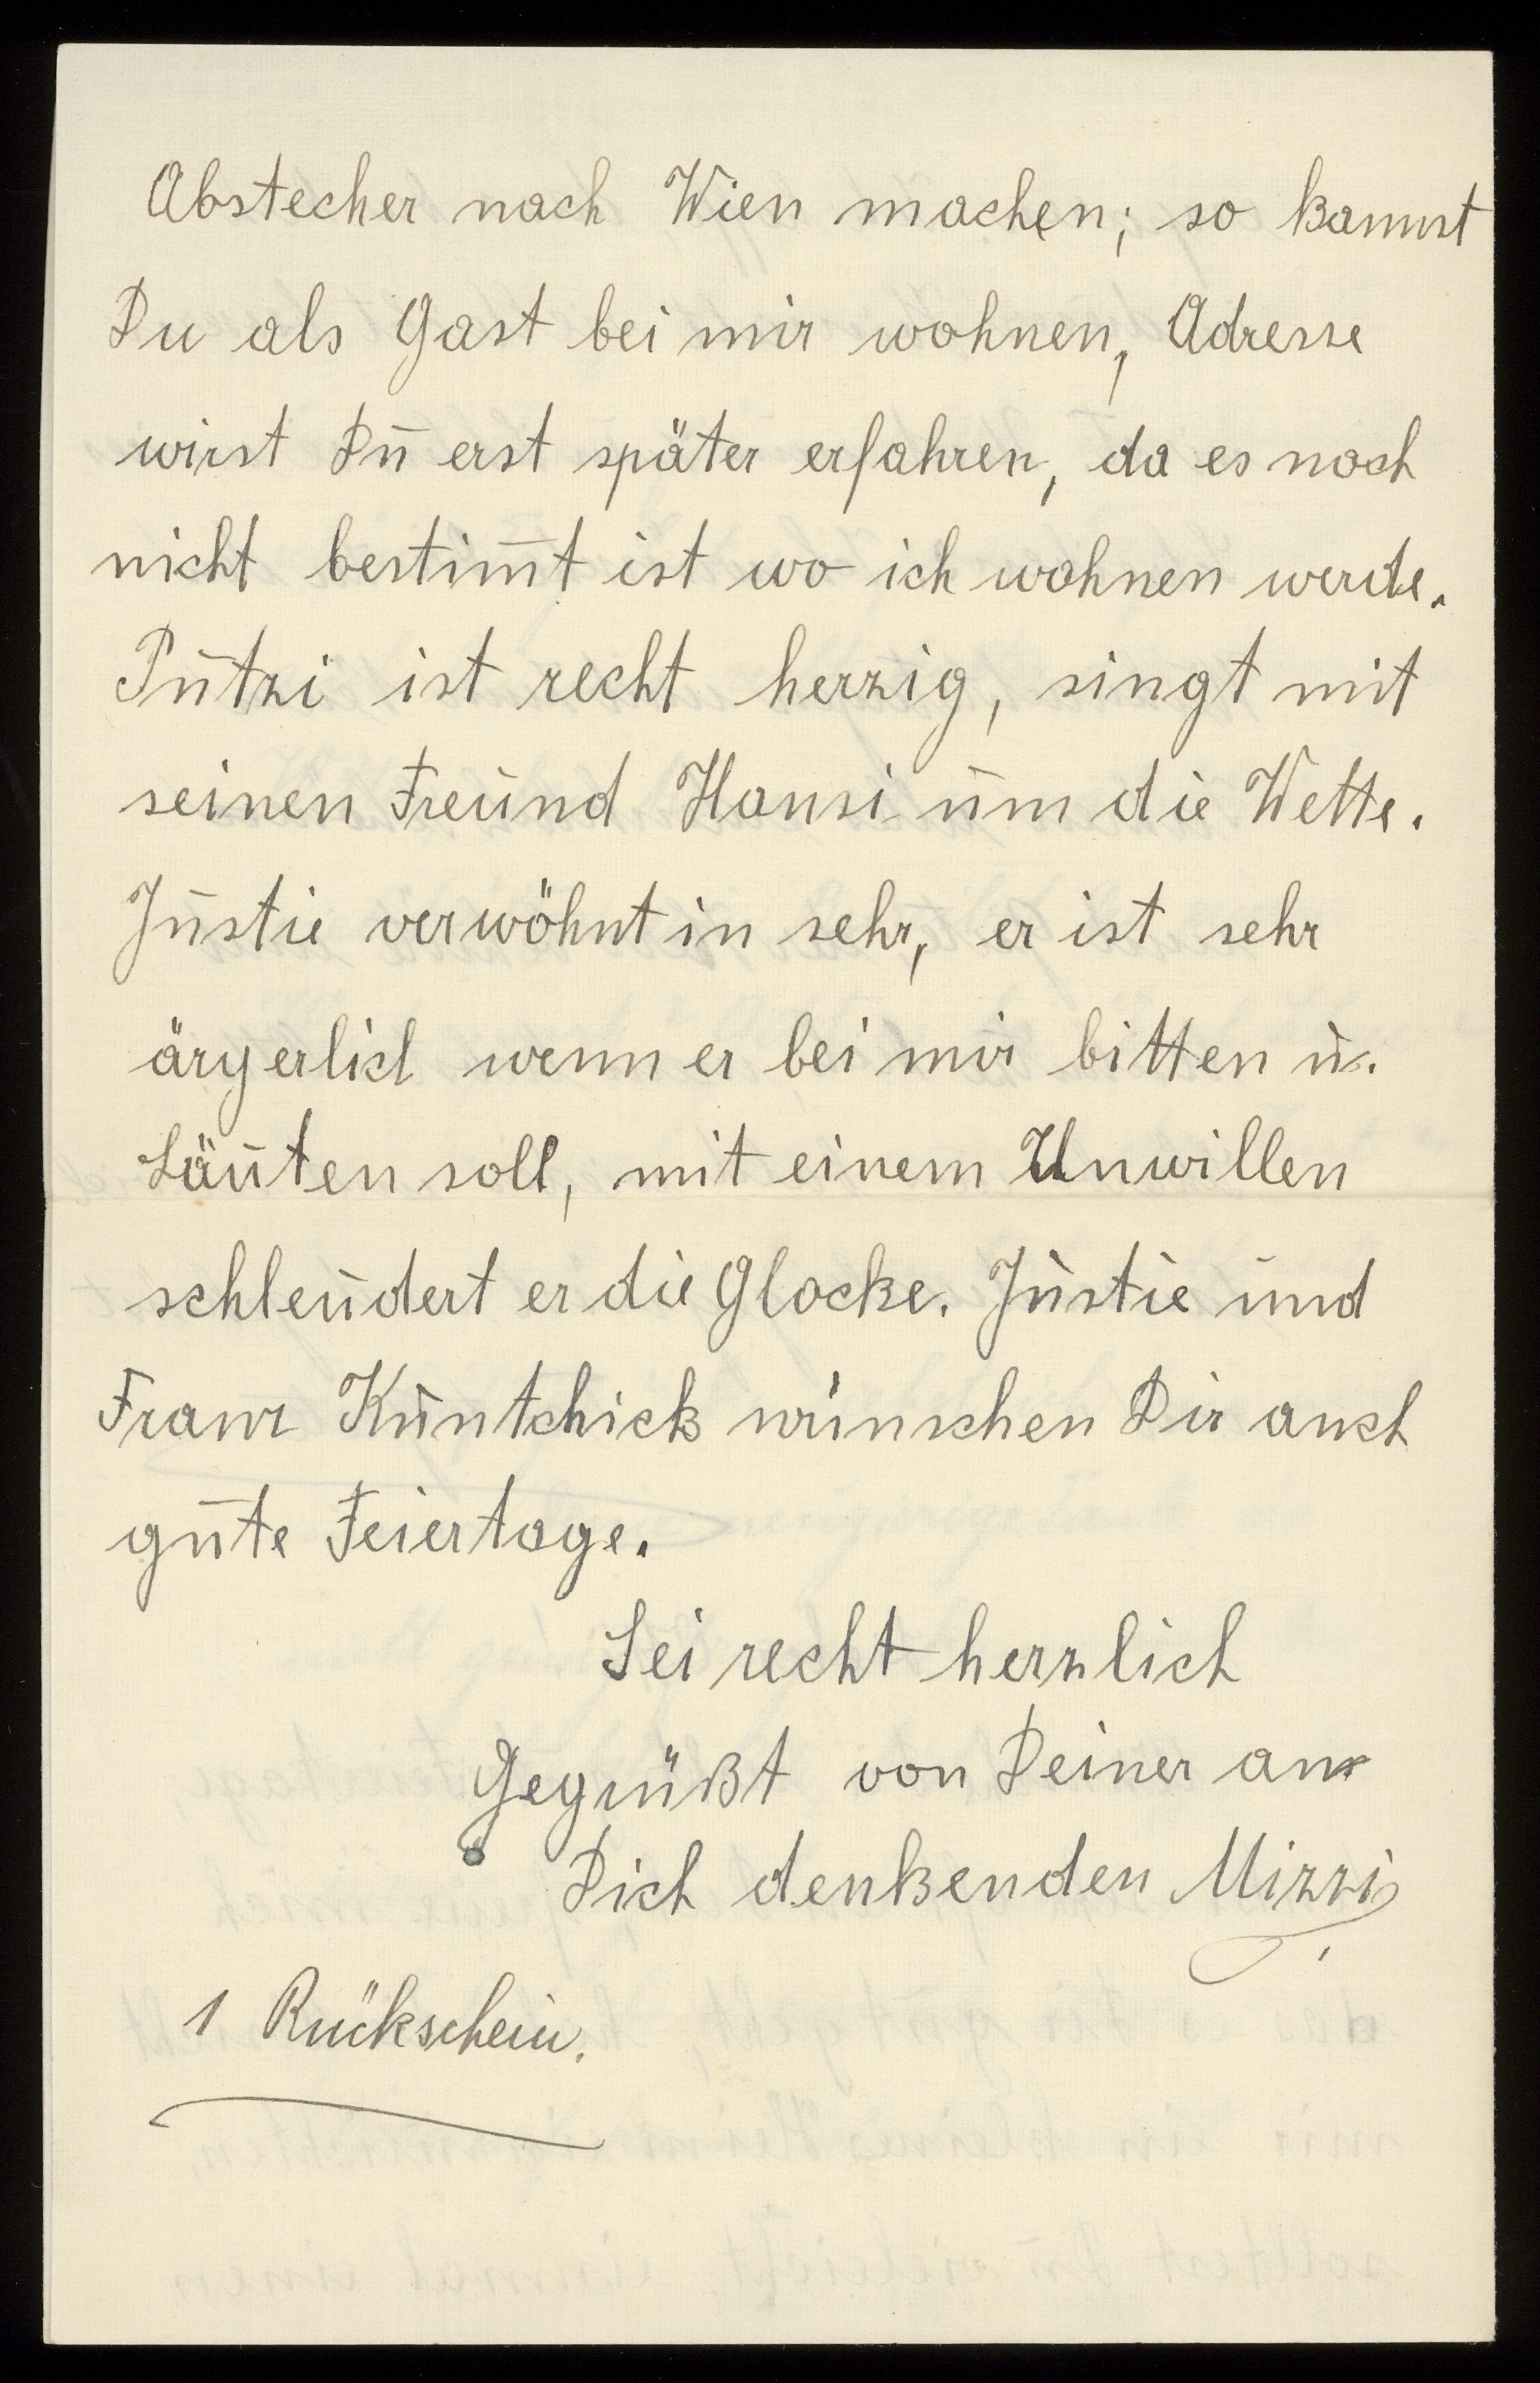 Abstecher nach Wien machen; so kannst
Du als Gast bei mir wohnen, Adresse
wirst Du erst später erfahren, da es noch
nicht bestim̅t ist wo ich wohnen werde.
Putzi ist recht herzig, singt mit
seinen Freund Hansi um die Wette.
Justie verwöhnt in sehr, er ist sehr
ärgerlich wenn er bei mir bitten u.
Läuten soll, mit einem Unwillen
schleudert er die Glocke. Justie und
Franz Kuntchick wünschen Dir auch
gute Feiertage.
Sei recht herzlich
Gegrüßt von Deiner an
Dich denkenden Mizzi
1 Rückschein.